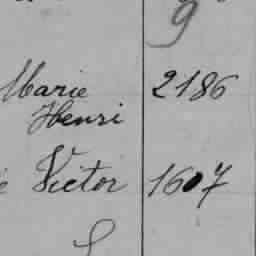 9
Marie 2186
Henri
Victor 1607